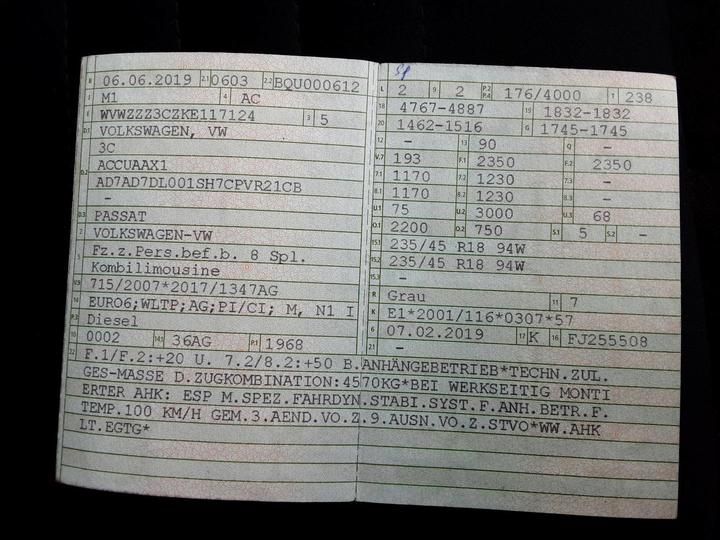 B 06.06.2019 2.1 0603 2.2 BQU000612
J M1 4 AC
E WVWZZZ3CZKE117124 3 5
D.1 VOLKSWAGEN, VW
3C
D.2 ACCUAAX1
AD7AD7DL001SH7CPVR21CB
-
D.3 PASSAT
2 VOLKSWAGEN-VW
5 Fz.z.Pers.bef.b. 8 Spl.
Kombilimousine
V.9 715/2007*2017/1347AG
14 EURO6;WLTP;AG;PI/CI; M, N1 I
P.3 Diesel
10 0002 14.1 36AG P.1 1968
L 2 9 2 P.2 P.4 176/4000 T 238
18 4767-4887 19 1832-1832
20 1462-1516 G 1745-1745
12 - 13 90 Q -
V.7 193 F.1 2350 F.2 2350
7.1 1170 7.2 1230 7.3 -
8.1 1170 8.2 1230 8.3 -
U.1 75 U.2 3000 U.3 68
O.1 2200 O.2 750 S.1 5 S.2 -
15.1 235/45 R18 94W
15.2 235/45 R18 94W
15.3 -
R Grau 11 7
K E1*2001/116*0307*57
6 07.02.2019 17 K 16 FJ255508
21 -
22 F.1/F.2:+20 U. 7.2/8.2:+50 B.ANHÄNGEBETRIEB*TECHN.ZUL.
GES-MASSE D.ZUGKOMBINATION:4570KG*BEI WERKSEITIG MONTI
ERTER AHK: ESP M.SPEZ.FAHRDYN.STABI.SYST.F.ANH.BETR.F.
TEMP.100 KM/H GEM.3.AEND.VO.Z.9.AUSN.VO.Z.STVO*WW.AHK
LT.EGTG*